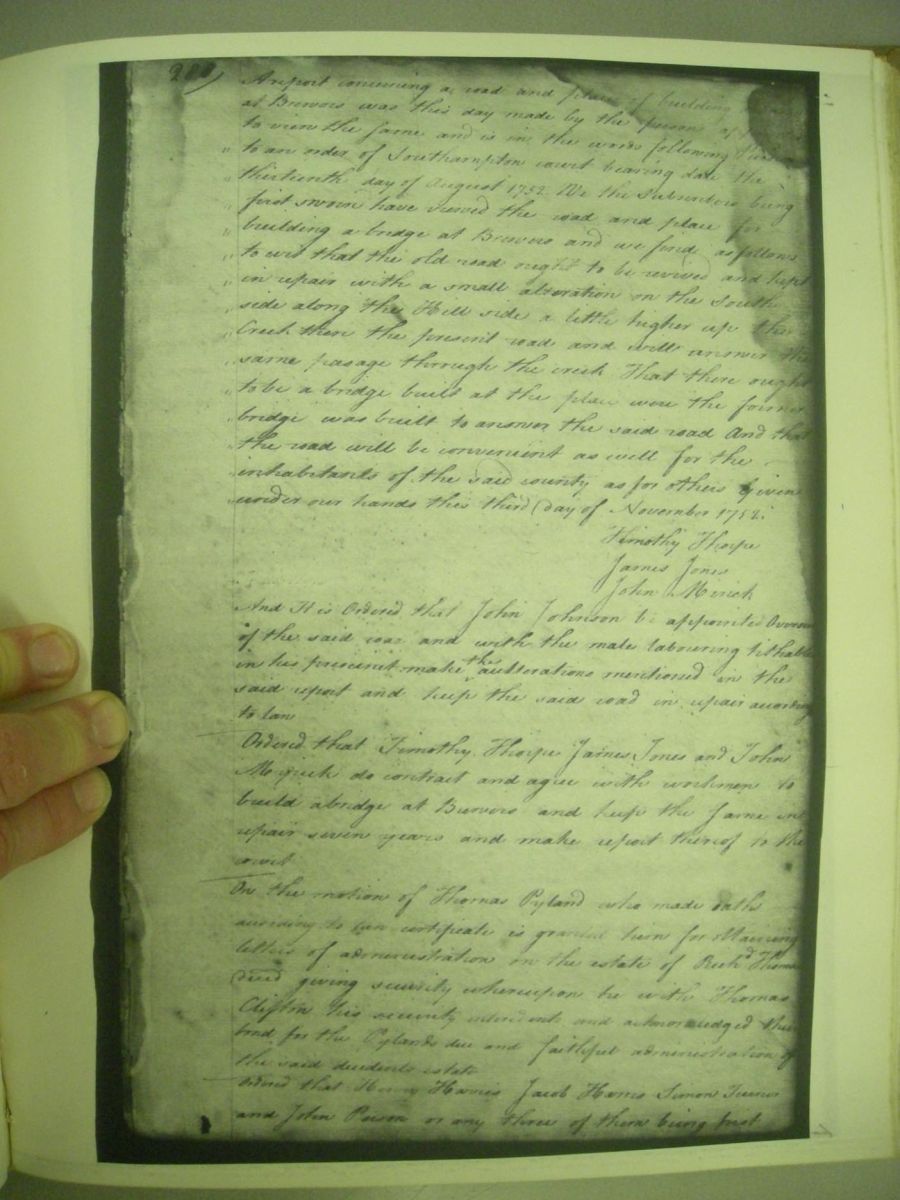 A report concerning a road and place of building
at Brewers was this day made by the persons
to view the same and is in the words following
to an order of Southampton court bearing date the
thirteenth day of August 1752. We the Subscribers being
first sworn have viewed the road and place for
building a bridge at Brewers and we find as follows
to wit that the old road ought to be revived and kept
in repair with a small alteration on the South
side along the Hill side a little higher up the
Creek then the present road and will answer the
same pasage through the creek That there ought
to be a bridge built at the place were the former
bridge was built to answer the said road And that
the road will be convenient as well for the
inhabitants of the said county as for others Given
under our hands this third day of November 1752:
Timothy Thorpe
James Jones
John
And It is Ordered that John Johnson be appointed
of the said road and with the male labouring tithables
in his precinct make the aulterations mentioned in the
said report and keep the said road in repair according
to Law
Ordered that Timothy Thorpe James Jones and John
do contract and agree with workmen to
build a bridge at Brewers and keep the same in
repair seven years and make report thereof to the
court
On the motion of Thomas Pyland who made oath
according to Law certificate is granted him for obtaining
letters of administration on the estate of Richd Thomas
decd giving security whereupon he with Thomas
Clifton his security entered into and acknowledged their
bond for the Pylands due and faithful administration of
the said decedents estate
Ordered that Harris Jacob Harris Simon Turner
and John Person or any three of them being first